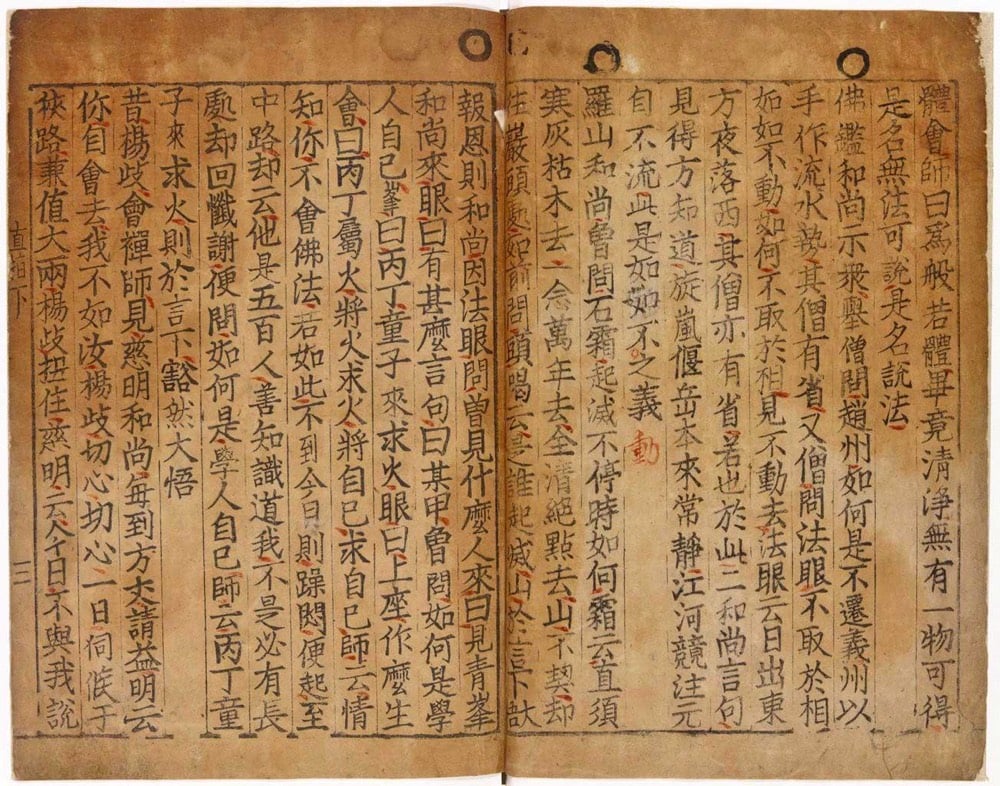 體會師曰爲般若體畢竟清淨無有一物可得
是名無法可說是名說法
佛鑑和尚示衆擧僧問趙州如何是不遷義州以
手作流水勢其僧有省又僧問法眼不取於相
如如不動如何不取於相見不動去法眼云日出東
方夜落西其僧亦有省若也於此二和尚言句
見得方知道旋嵐偃岳本來常靜江河競注元
自不流此是如如不之義 動
羅山和尚曾問石霜起滅不停時如何霜云直須
寒灰枯木去一念萬年去全清絶點去山不契却
往巖頭處如前問頭喝云是誰起滅山於言下
報恩則和尚因法眼問曽見什麽人來曰見青峯
和尚來眼曰有甚麽言句曰某甲曾問如何是學
人自己峯曰丙丁童子來求火眼曰上座作麽生
會曰丙丁屬火將火求火將自己求自己師云情
知你不會佛法若如此不到今日則躁悶便起至
中路却云他是五百人善知識道我不是必有長
處却回懺謝便問如何是學人自己師云丙丁童
子來求火則於言下豁然大悟
昔楊歧會禪師見慈明和尚每到方丈請益明云
你自會去我不如汝楊歧切心切心一日伺候于
狹路兼值大雨楊歧扭住慈明云今日不與我說
直指下
三